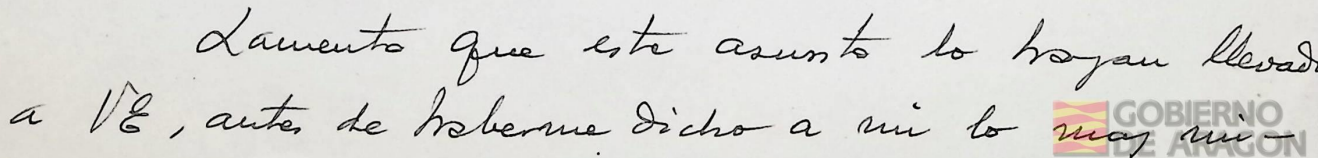 Lamento que este asunto lo hayan llevado
a VE, antes de haberme dicho a mi lo mas mi-
GOBIERNO
DE ARAGON